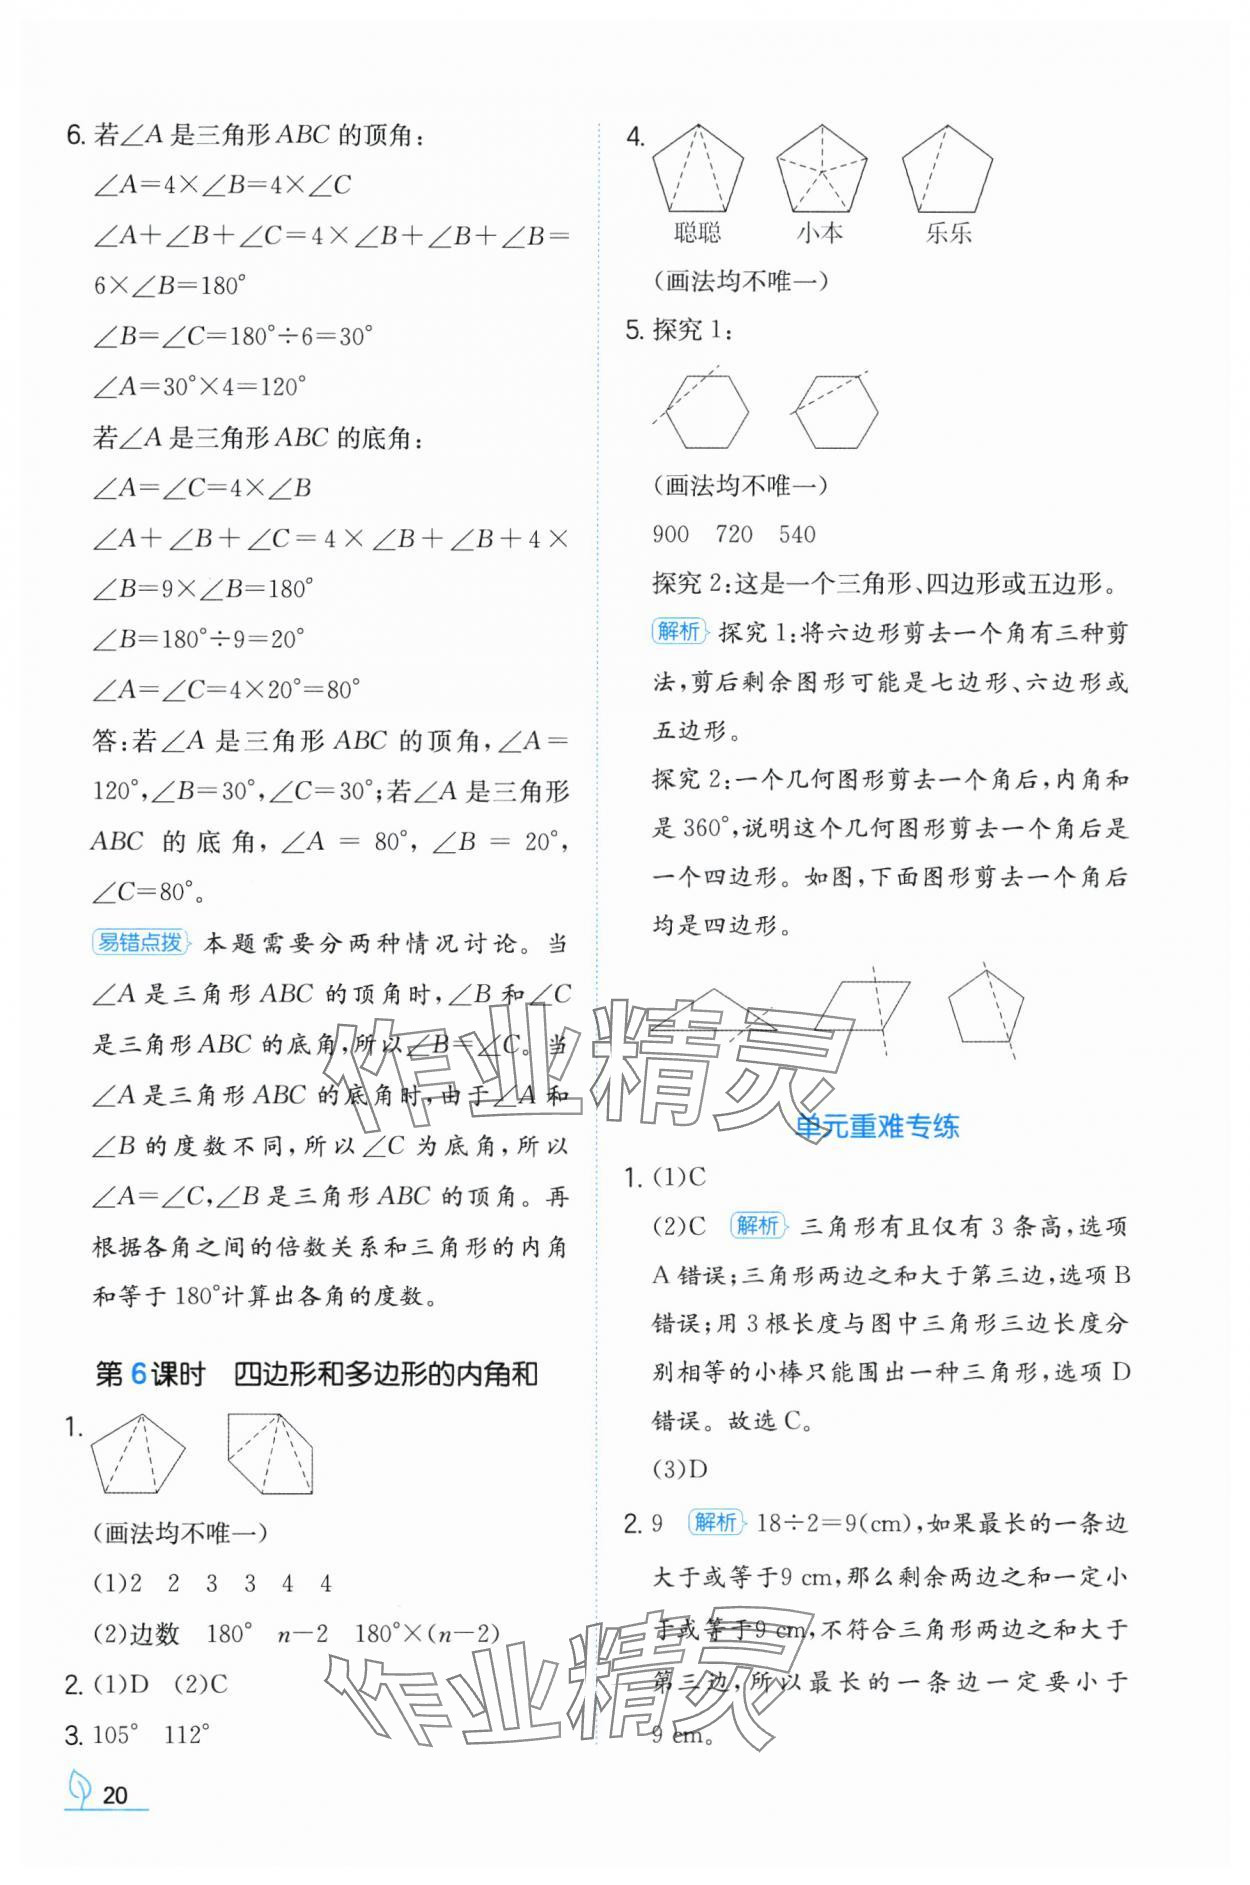 6. 若∠A是三角形ABC的顶角:
∠A=4×∠B=4×∠C
∠A+∠B+∠C=4×∠B+∠B+∠B=
6×∠B=180°
∠B=∠C=180°÷6=30°
∠A=30°×4=120°
若∠A是三角形ABC的底角:
∠A=∠C=4×∠B
∠A+∠B+∠C=4×∠B+∠B+4×
∠B=9×∠B=180°
∠B=180°÷9=20°
∠A=∠C=4×20°=80°
答:若∠A是三角形ABC的顶角,∠A=
120°,∠B=30°,∠C=30°;若∠A是三角形
ABC的底角,∠A=80°,∠B=20°,
∠C=80°。
易错点拨 本题需要分两种情况讨论。当
∠A是三角形ABC的顶角时,∠B和∠C
是三角形ABC的底角,所以∠B=∠C。当
∠A是三角形ABC的底角时,由于∠A和
∠B的度数不同,所以∠C为底角,所以
∠A=∠C,∠B是三角形ABC的顶角。再
根据各角之间的倍数关系和三角形的内角
和等于180°计算出各角的度数。
第6课时 四边形和多边形的内角和
1.
(画法均不唯一)
(1)2 2 3 3 4 4
(2)边数 180° n-2 180°×(n-2)
2. (1)D (2)C
3. 105° 112°
20
4.
聪聪 小本 乐乐
(画法均不唯一)
5. 探究1:
(画法均不唯一)
900 720 540
探究2:这是一个三角形、四边形或五边形。
解析 探究1:将六边形剪去一个角有三种剪
法,剪后剩余图形可能是七边形、六边形或
五边形。
探究2:一个几何图形剪去一个角后,内角和
是360°,说明这个几何图形剪去一个角后是
一个四边形。如图,下面图形剪去一个角后
均是四边形。
单元重难专练
1. (1)C
(2)C 解析 三角形有且仅有3条高,选项
A错误;三角形两边之和大于第三边,选项B
错误;用3根长度与图中三角形三边长度分
别相等的小棒只能围出一种三角形,选项D
错误。故选C。
(3)D
2. 9 解析 18÷2=9(cm),如果最长的一条边
大于或等于9 cm,那么剩余两边之和一定小
于或等于9 cm,不符合三角形两边之和大于
第三边,所以最长的一条边一定要小于
9 cm。
作业精灵
作业精灵